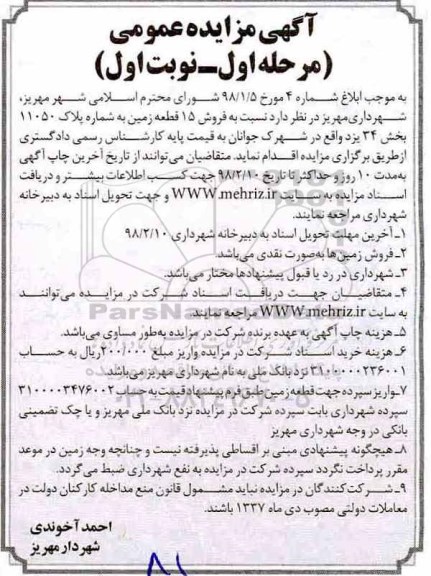 آگهی مزایده عمومی
(مرحله اول_نوبت اول)
به موجب ابلاغ شماره ۴ مورخ ۹۸/۱/۵ شورای محترم اسلامی شهر مهریز،
شهرداری‌مهریز در نظر دارد نسبت به فروش ۱۵ قطعه زمین به شماره پلاک ۱۱۰۵۰
بخش ۳۴ یزد واقع در شهرک جوانان به قیمت پایه کارشناس رسمی دادگستری
ازطریق برگزاری مزایده اقدام نماید. متقاضیان می‌توانند از تاریخ آخرین چاپ آگهی
به‌مدت ۱۰ روز و حداکثر تا تاریخ ۹۸/۲/۱۰ جهت کسب اطلاعات بیشتر و دریافت
اسناد مزایده به سایت WWW.mehriz.ir و جهت تحویل اسناد به دبیرخانه
شهرداری مراجعه نمایند.
۱_آخرین مهلت تحویل اسناد به دبیرخانه شهرداری ۹۸/۲/۱۰
۲_فروش زمین‌ها به‌صورت نقدی می‌باشد.
۳_شهرداری در رد یا قبول پیشنهادها مختار می‌باشد.
۴_متقاضیان جهت دریافت اسناد شرکت در مزایده می‌توانند
به سایت WWW.mehriz.ir مراجعه نمایند.
۵_هزینه چاپ آگهی به عهده برنده شرکت در مزایده به‌طور مساوی می‌باشد.
۶_هزینه خرید اسناد شرکت در مزایده واریز مبلغ ۲۰۰/۰۰۰ریال به حساب
۳۱۰۰۰۰۰۲۳۶۰۰۱ نزد بانک ملی به نام شهرداری مهریز می‌باشد.
۷_واریز سپرده جهت قطعه زمین طبق فرم پیشنهاد قیمت به حساب ۳۱۰۰۰۰۳۴۷۶۰۰۲
سپرده شهرداری بابت سپرده شرکت در مزایده نزد بانک ملی مهریز و یا چک تضمینی
بانکی در وجه شهرداری مهریز
۸_هیچگونه پیشنهادی مبنی بر اقساطی پذیرفته نیست و چنانچه وجه زمین در موعد
مقرر پرداخت نگردد سپرده شرکت در مزایده به نفع شهرداری ضبط می‌گردد.
۹_شرکت‌کنندگان در مزایده نباید مشمول قانون منع مداخله کارکنان دولت در
معاملات دولتی مصوب دی ماه ۱۳۳۷ باشند.
احمد آخوندی
شهردار مهریز
۸۱